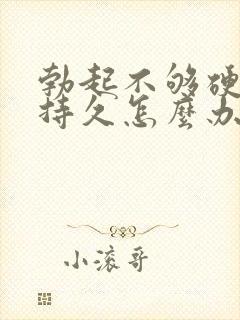 勃起不够硬
持久怎麽办
小滚哥